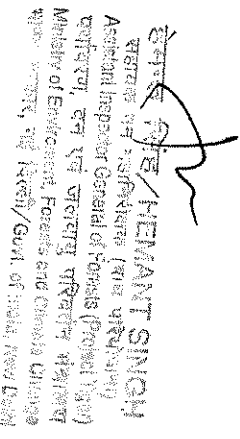 हेमन्त सिंह/HEMANT SINGH
सहायक वन महानिरीक्षक
Assistant Inspector General of Forests
पर्यावरण, वन एवं जलवायु परिवर्तन मंत्रालय
Ministry of Environment, Forests and Climate Change
भारत सरकार, नई दिल्ली/Govt. of India, New Delhi